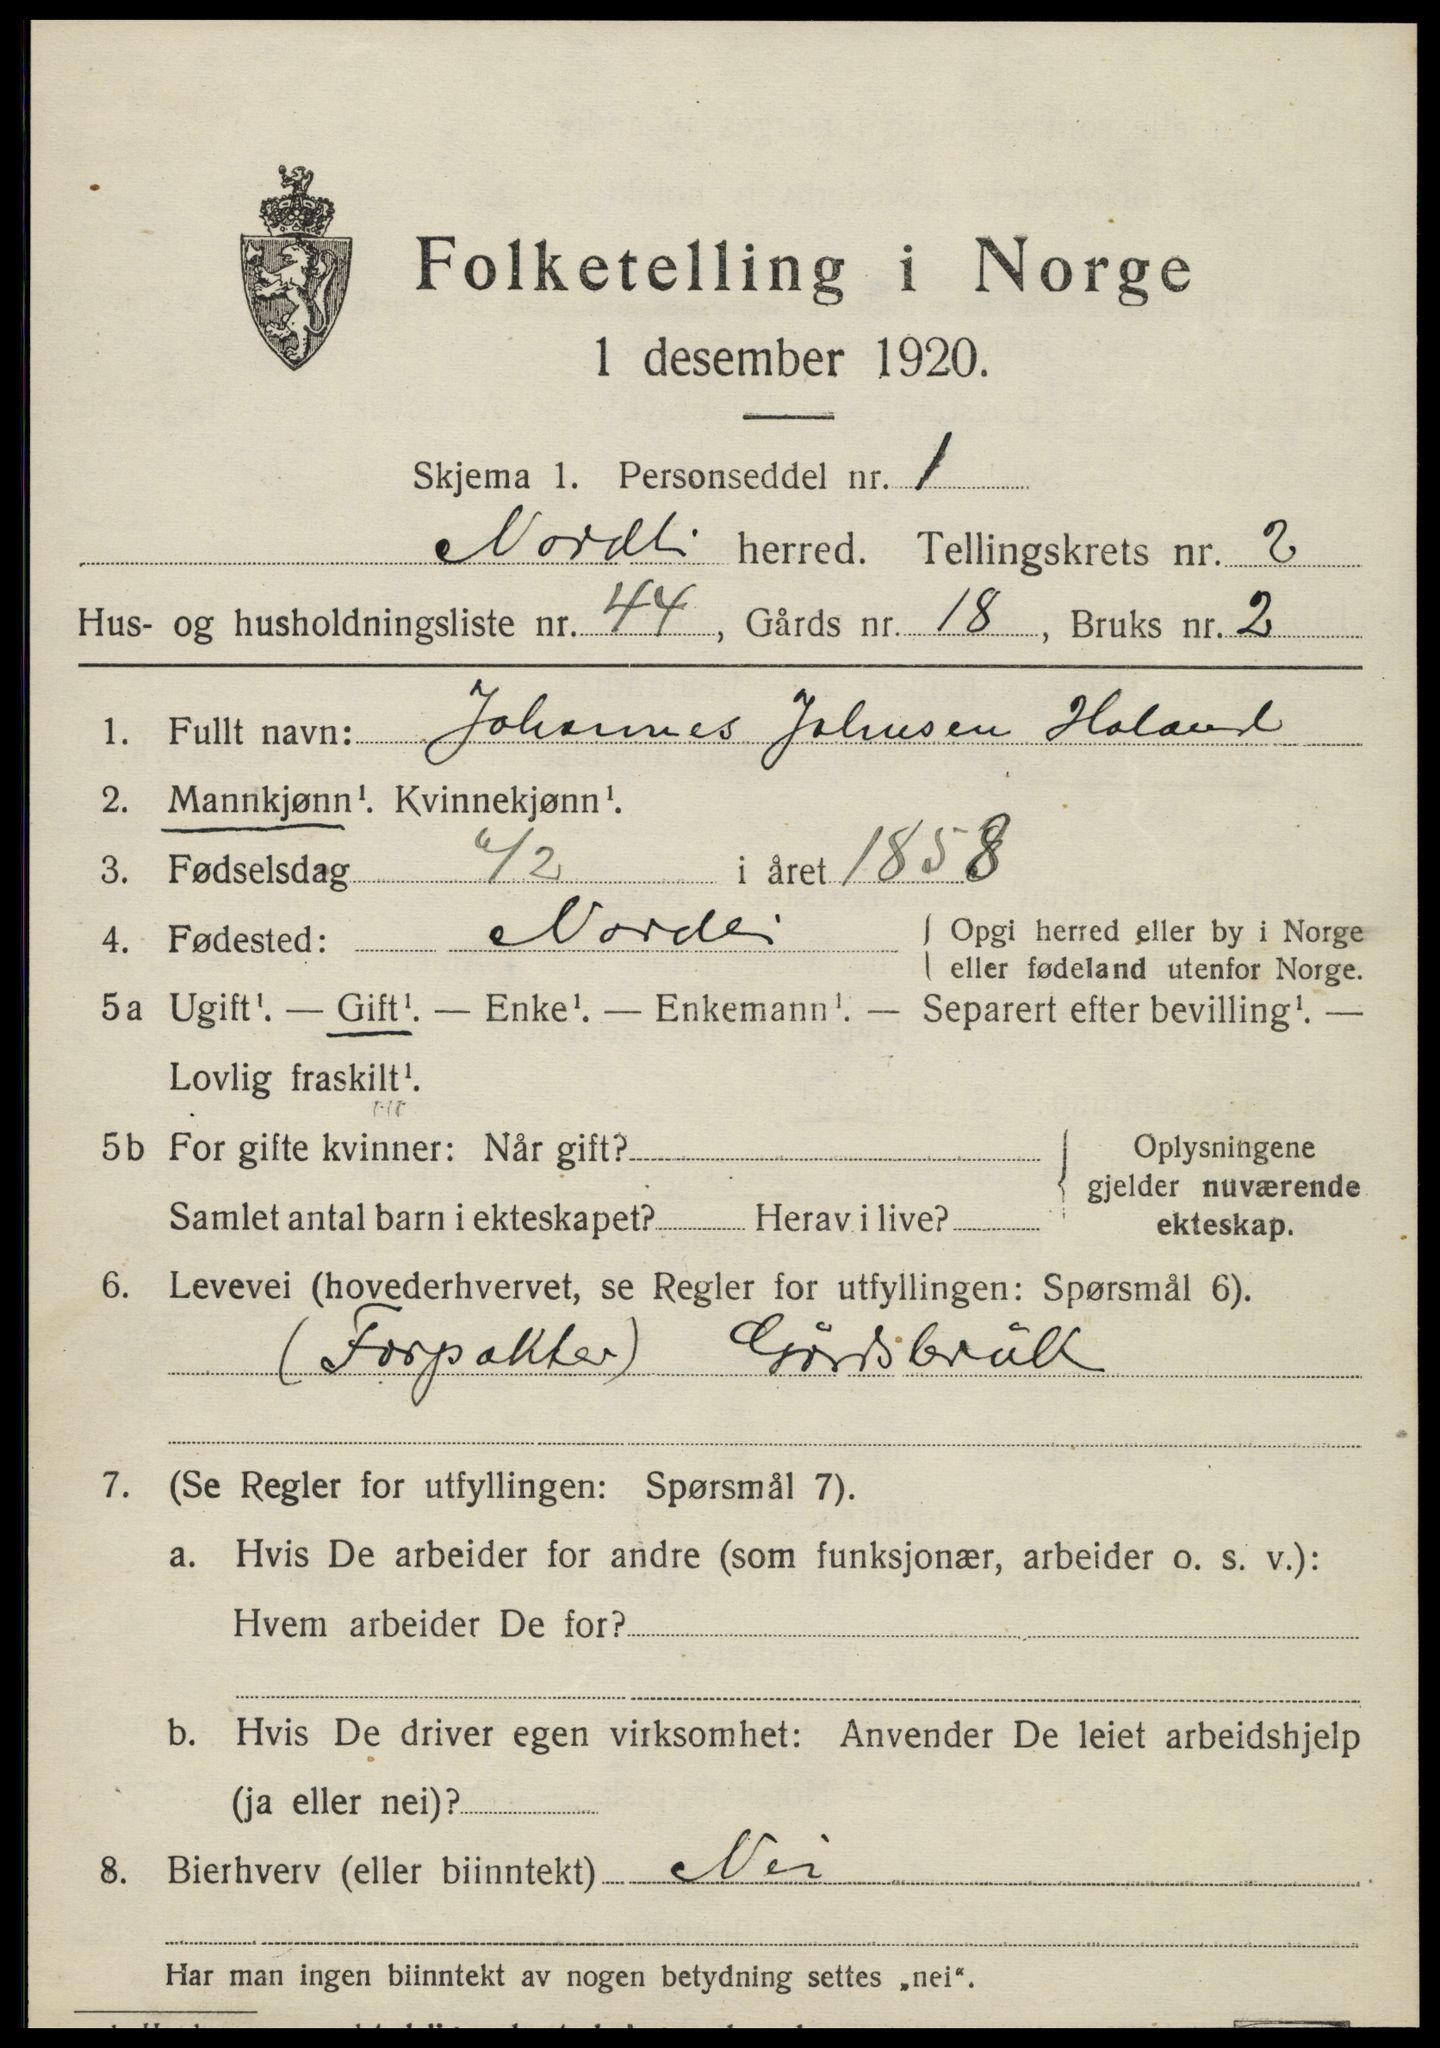 Folketelling i Norge
1 desember 1920.
Skjema 1. Personseddel nr. 1
Nordli herred. Tellingskrets nr. 2
Hus- og husholdningsliste nr. 44, Gårds nr. 18, Bruks nr. 2
1. Fullt navn: Johannes Johnsen Holand
2. Mannkjønn¹. Kvinnekjønn¹.
3. Fødselsdag 6/2 i året 1858
4. Fødested: Nordli { Opgi herred eller by i Norge
eller fødeland utenfor Norge.
5a Ugift¹. — Gift¹. — Enke¹. — Enkemann¹. — Separert efter bevilling¹. —
Lovlig fraskilt¹.
5b For gifte kvinner: Når gift? Oplysningene
gjelder nuværende
Samlet antal barn i ekteskapet? Herav i live? ekteskap.
6. Levevei (hovederhvervet, se Regler for utfyllingen: Spørsmål 6).
(Forpakter) Gårdsbruk
7. (Se Regler for utfyllingen: Spørsmål 7).
a. Hvis De arbeider for andre (som funksjonær, arbeider o. s. v.):
Hvem arbeider De for?
b. Hvis De driver egen virksomhet: Anvender De leiet arbeidshjelp
(ja eller nei)?
8. Bierhverv (eller biinntekt) Nei
Har man ingen biinntekt av nogen betydning settes „nei“.